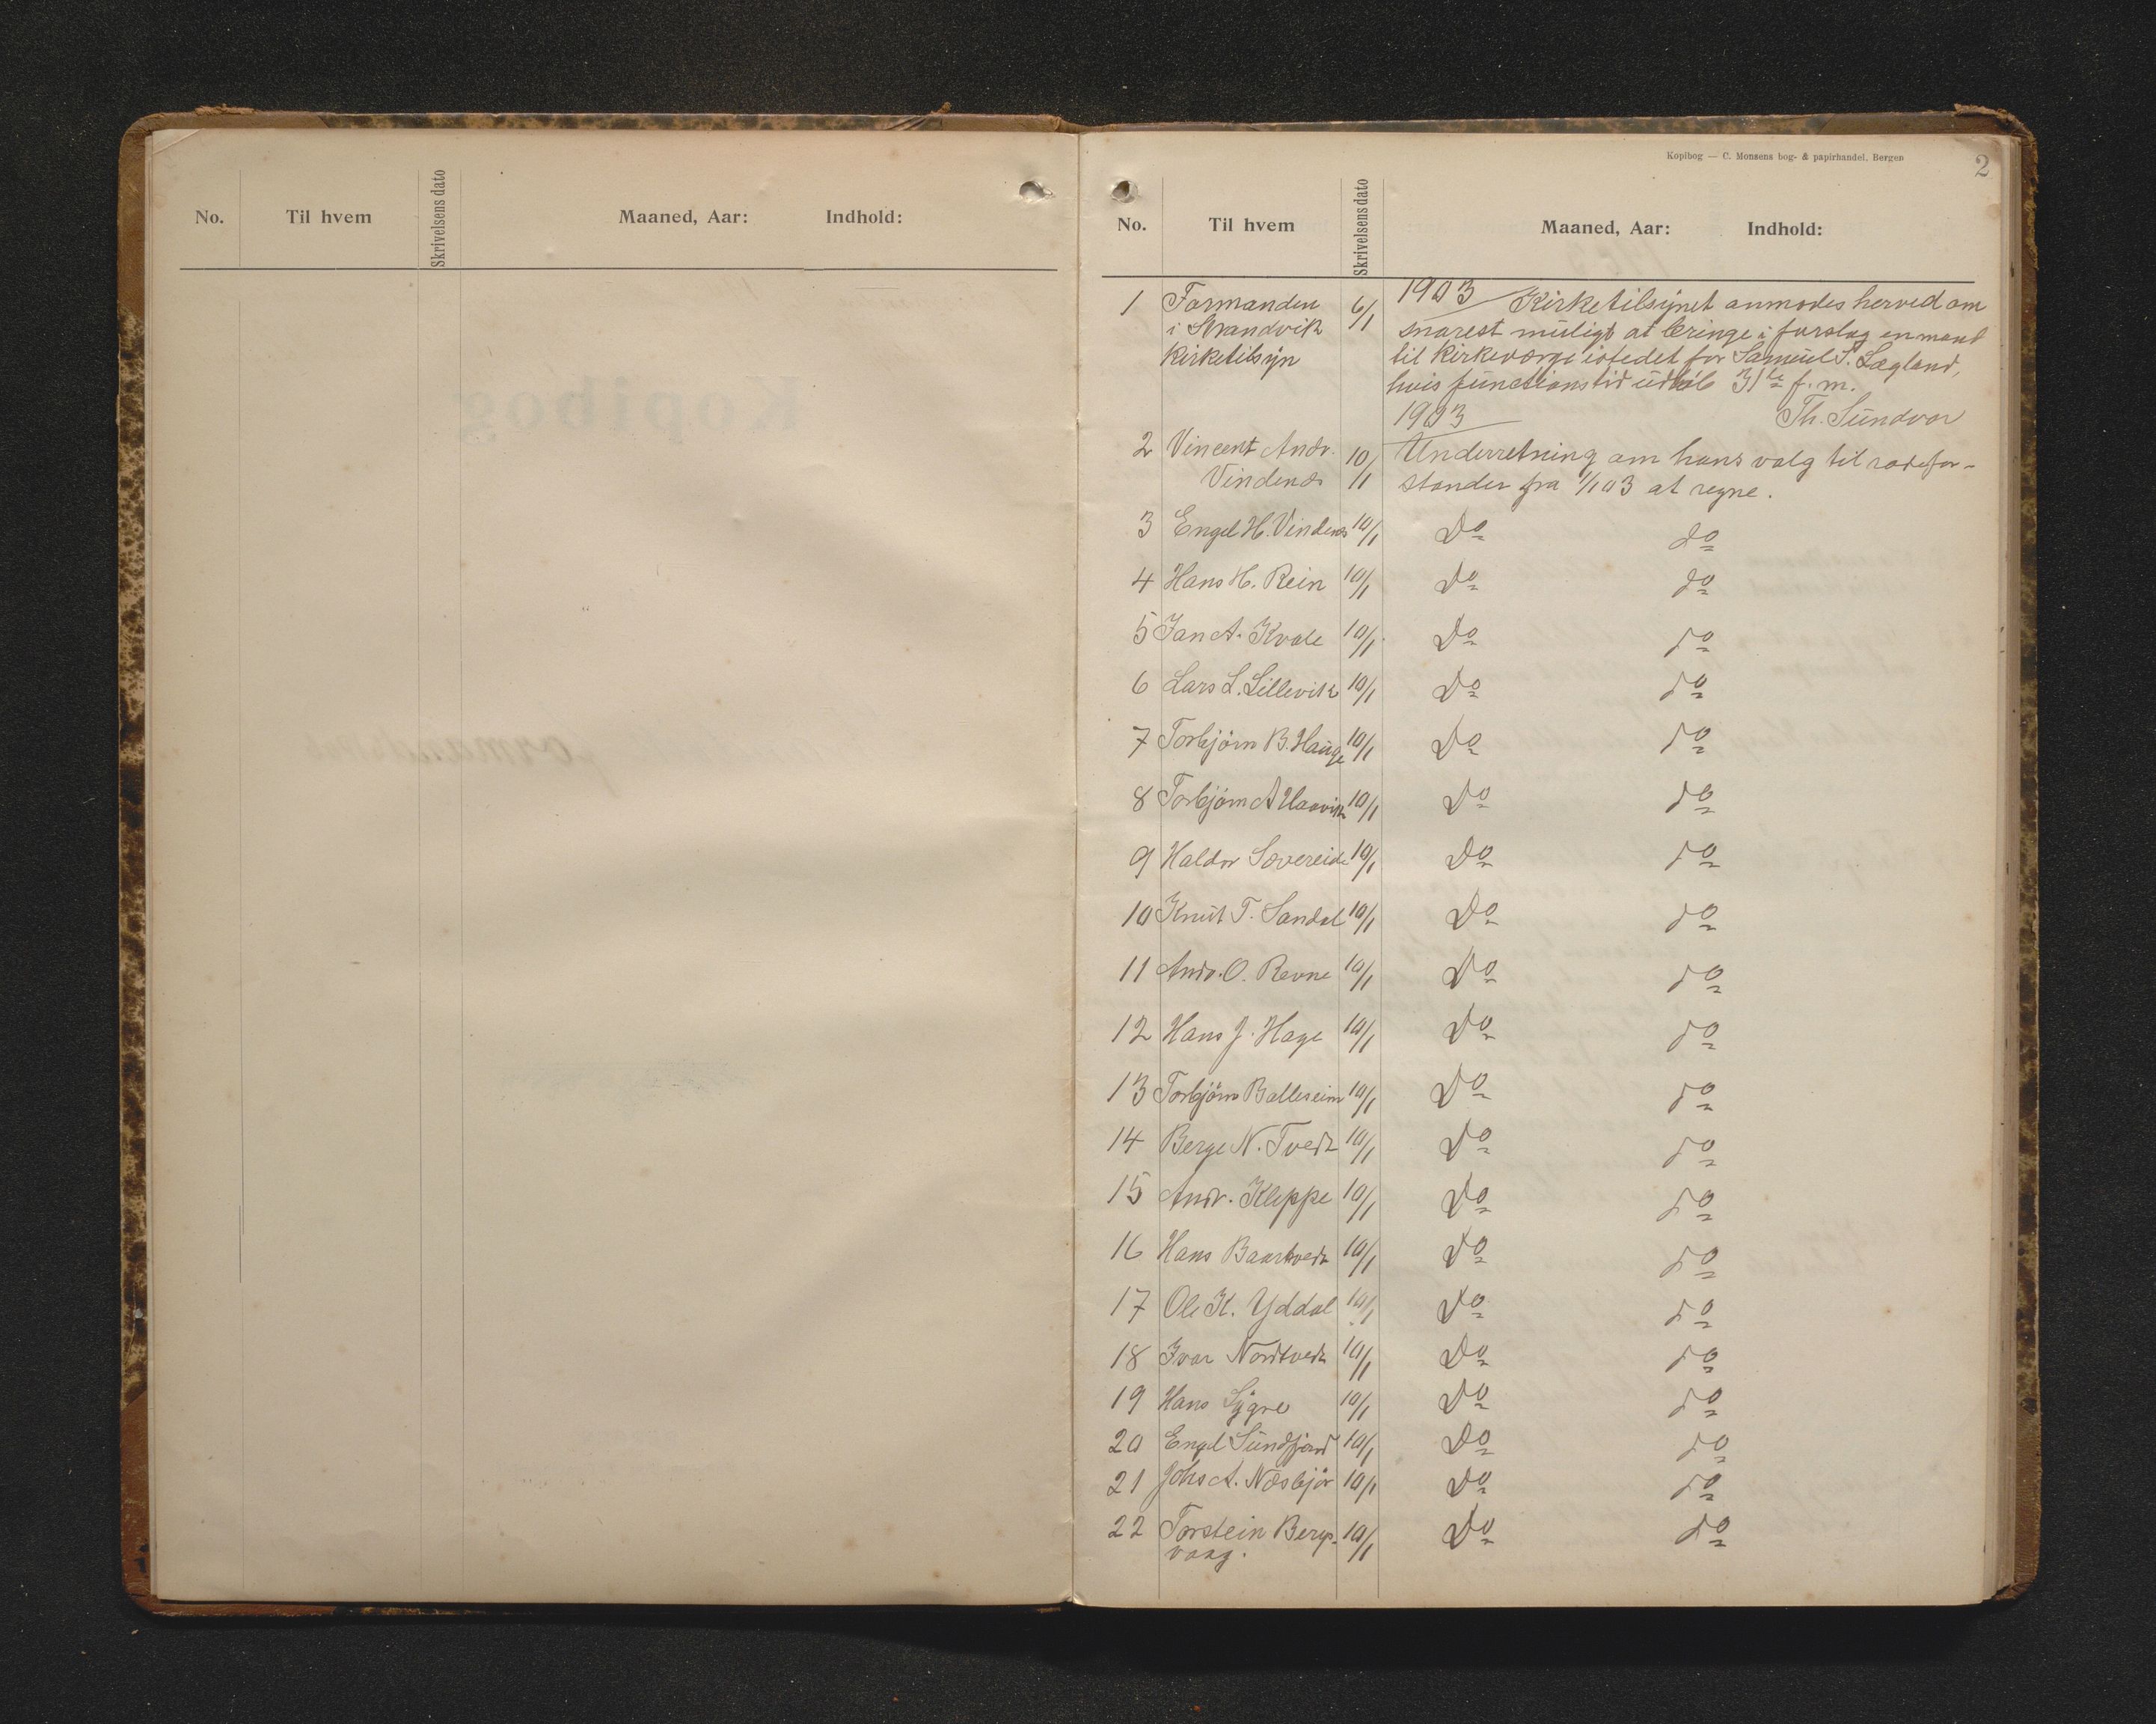 No. Til hvem Skrivelsens dato Maaned, Aar: Indhold:
Kopibog — C. Monsens bog- & papirhandel, Bergen
2
No. Til hvem Skrivelsens dato Maaned, Aar: Indhold:
1 Formanden 6/1 1903 Kirketilsynet anmodes herved om
i Strandvik snarest muligt at bringe i forslag en mand
Kirketilsyn til Kirkeværge istedet for Samuel S. Lægland,
hvis functionstid udløb 31te f. m.
1903 Th. Sundvor
2 Vincent Andr. 10/1 Underretning om hans valg til rodefor-
Vindenes stander fra 1/1 03 at regne.
3 Engel H. Vindenes 10/1 Do do
4 Hans H. Rein 10/1 Do do
5 Jan A. Kvale 10/1 Do do
6 Lars L. Lillevik 10/1 Do do
7 Torbjörn B. Hauge 10/1 Do do
8 Torbjörn A Haavik 10/1 Do do
9 Haldor Sævereide 10/1 Do do
10 Knut T. Sandal 10/1 Do do
11 Andr. O. Revne 10/1 Do do
12 Hans J. Hage 10/1 Do do
13 Torbjörn Balleseim 10/1 Do do
14 Berge N. Tvedt 10/1 Do do
15 Andr. Kleppe 10/1 Do do
16 Hans Baartvedt 10/1 Do do
17 Ole K. Yddal 10/1 Do do
18 Ivar Nordtvedt 10/1 Do do
19 Hans Lygre 10/1 Do do
20 Engel Sundfjord 10/1 Do do
21 Johs A. Næsbjör 10/1 Do do
22 Torstein Berge- 10/1 Do do
vaag.